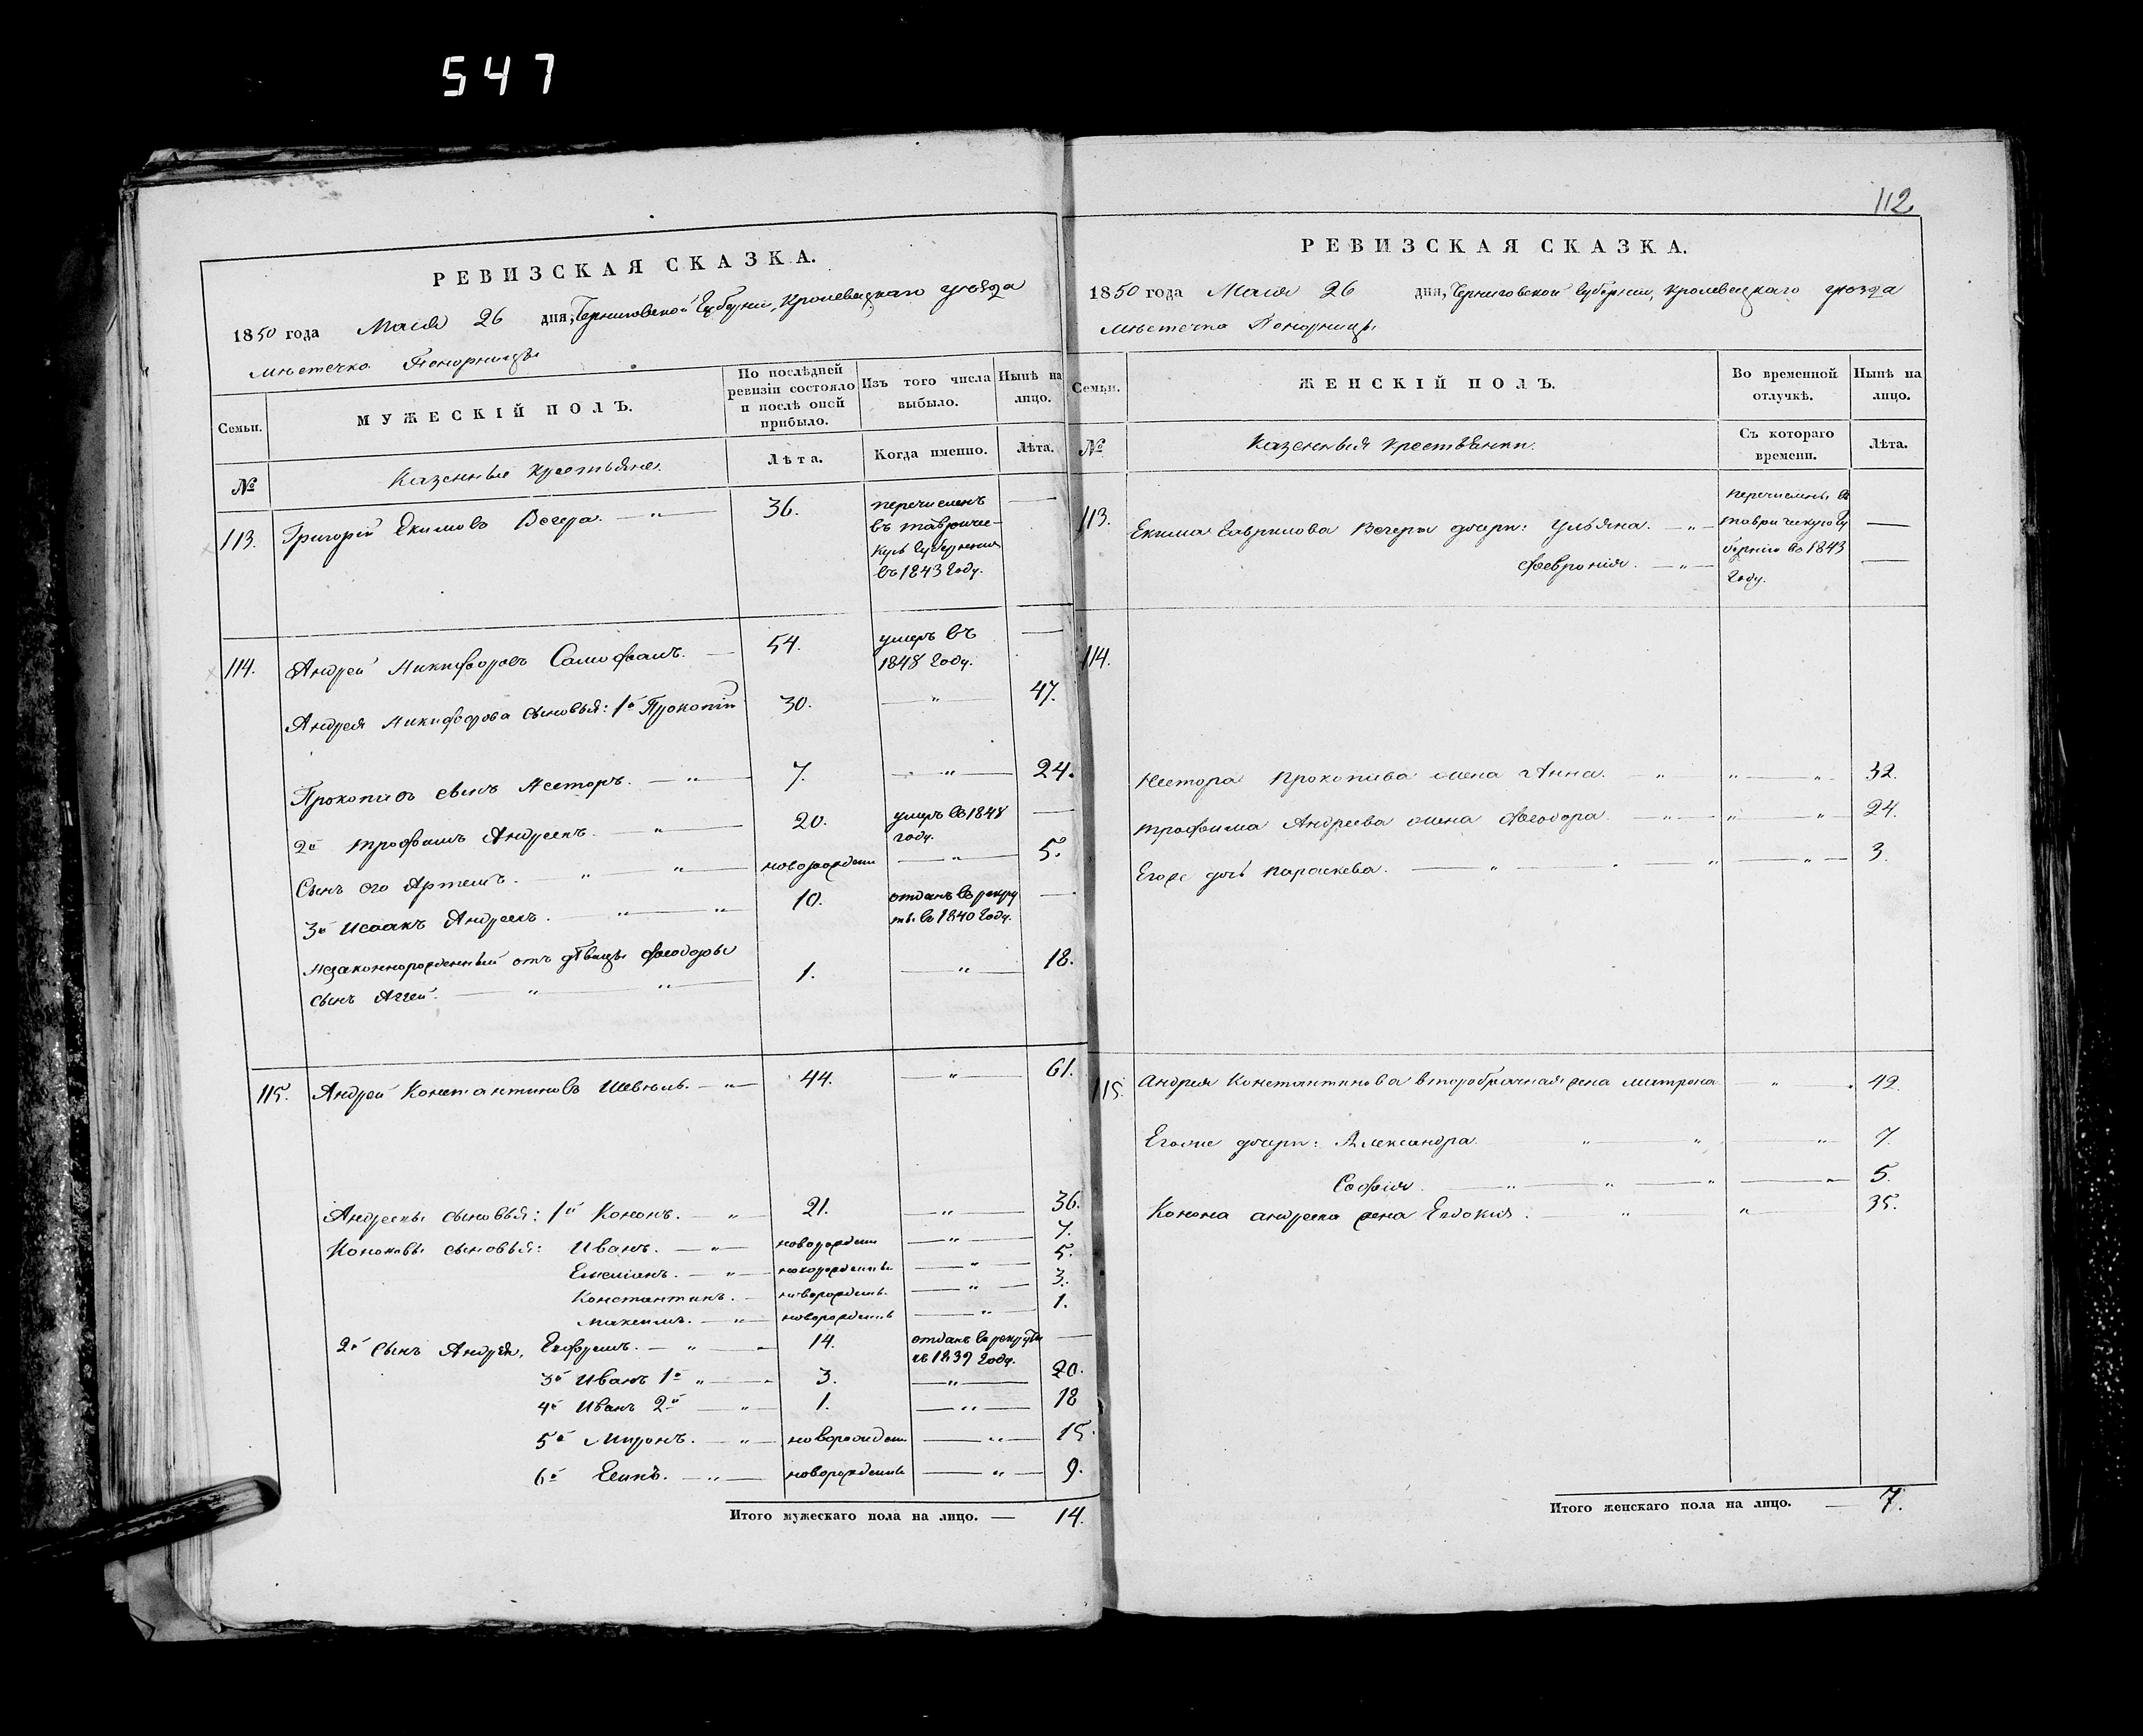 547
РЕВИЗСКАЯ СКАЗКА.
1850 года Маія 26 дня, Черниговской Губерніи, Кролевецкаго уезда
мѣстечка Понорницы
Семьи.
МУЖЕСКІЙ ПОЛЪ.
По послѣдней ревизіи состояло и послѣ оной прибыло.
Изъ того числа выбыло.
Нынѣ на лицо.
№
Казенные крестьяне.
Лѣта.
Когда именно.
Лѣта.
113. Григорій Екимовъ Вечера. — „ — 36. перечисленъ
въ Тавриче-
въ 1843 Году.
114. Андрей Никифоровъ 54. умеръ въ
1848 Году. —
Андрея Никифорова сыновья: 1й Прокопій 30. — „ — 47.
Прокопіевъ сынъ Несторъ. — „ — 7. — „ — 24.
2й Трофимъ Андреевъ. — „ — 20. умеръ въ 1848
году. —
Сынъ его Артемъ. „ „ новорожден — „ — 5.
3й Исаакъ Андреевъ. „ — „ 10. отданъ въ рекру
ты въ 1840 Году. —
Незаконнорожденный отъ дѣвицы Феодоры
сынъ Аггей. — „ — „ — 1. — „ — 18.
115. Андрей Константиновъ — „ — 44. — „ — 61.
Андреевы сыновья: 1й Кононъ. — „ 21. — „ — 36.
Кононовы сыновья: Иванъ. — „ — новорожден — „ — 7.
Емеліанъ. — „ — новорожденъ — „ — 5.
Константинъ. — новорожденъ. — „ — 3.
Максимъ. — „ — новорожденъ — „ — 1.
2й сынъ Андрея, Ефремъ. — „ — 14. отданъ въ рекруты
въ 1839 Году. —
3й Иванъ 1й „ — 3. — „ — 20.
4й Иванъ 2й — „ — 1. — „ — 18
5й Миронъ. — „ — новорожден — „ — 15.
6й — „ — новорожденъ — „ — 9.
Итого мужескаго пола на лицо. — 14.
112
РЕВИЗСКАЯ СКАЗКА.
1850 года Маія 26 дня, Черниговской Губерніи, Кролевецкаго уезда
мѣстечка Понорницы
Семьи.
ЖЕНСКІЙ ПОЛЪ.
Во временной отлучкѣ.
Нынѣ на лицо.
№
Казенныя крестьянки.
Съ котораго времени.
Лѣта.
113. Екима Гаврилова Вечеры дочери: Ульяна. — „ — перечислены въ
Таврическую Гу —
Феврónія. — „ — бернію въ 1843
Году. —
114.
Нестора Прокопіева жена Анна. „ „ — „ 32.
Трофима Андреева жена Феодора. „ — „ — „ 24.
Егоже дочь Параскева. — „ — „ — „ — 3.
115. Андрея Константинова второбрачная жена Матрона — „ — 49.
Егоже дочери: Александра. „ „ — „ 7.
Софія. — „ — „ — „ — „ 5.
Конона Андреева жена Евдокія. — „ „ — 35.
Итого женскаго пола на лицо. — 7.